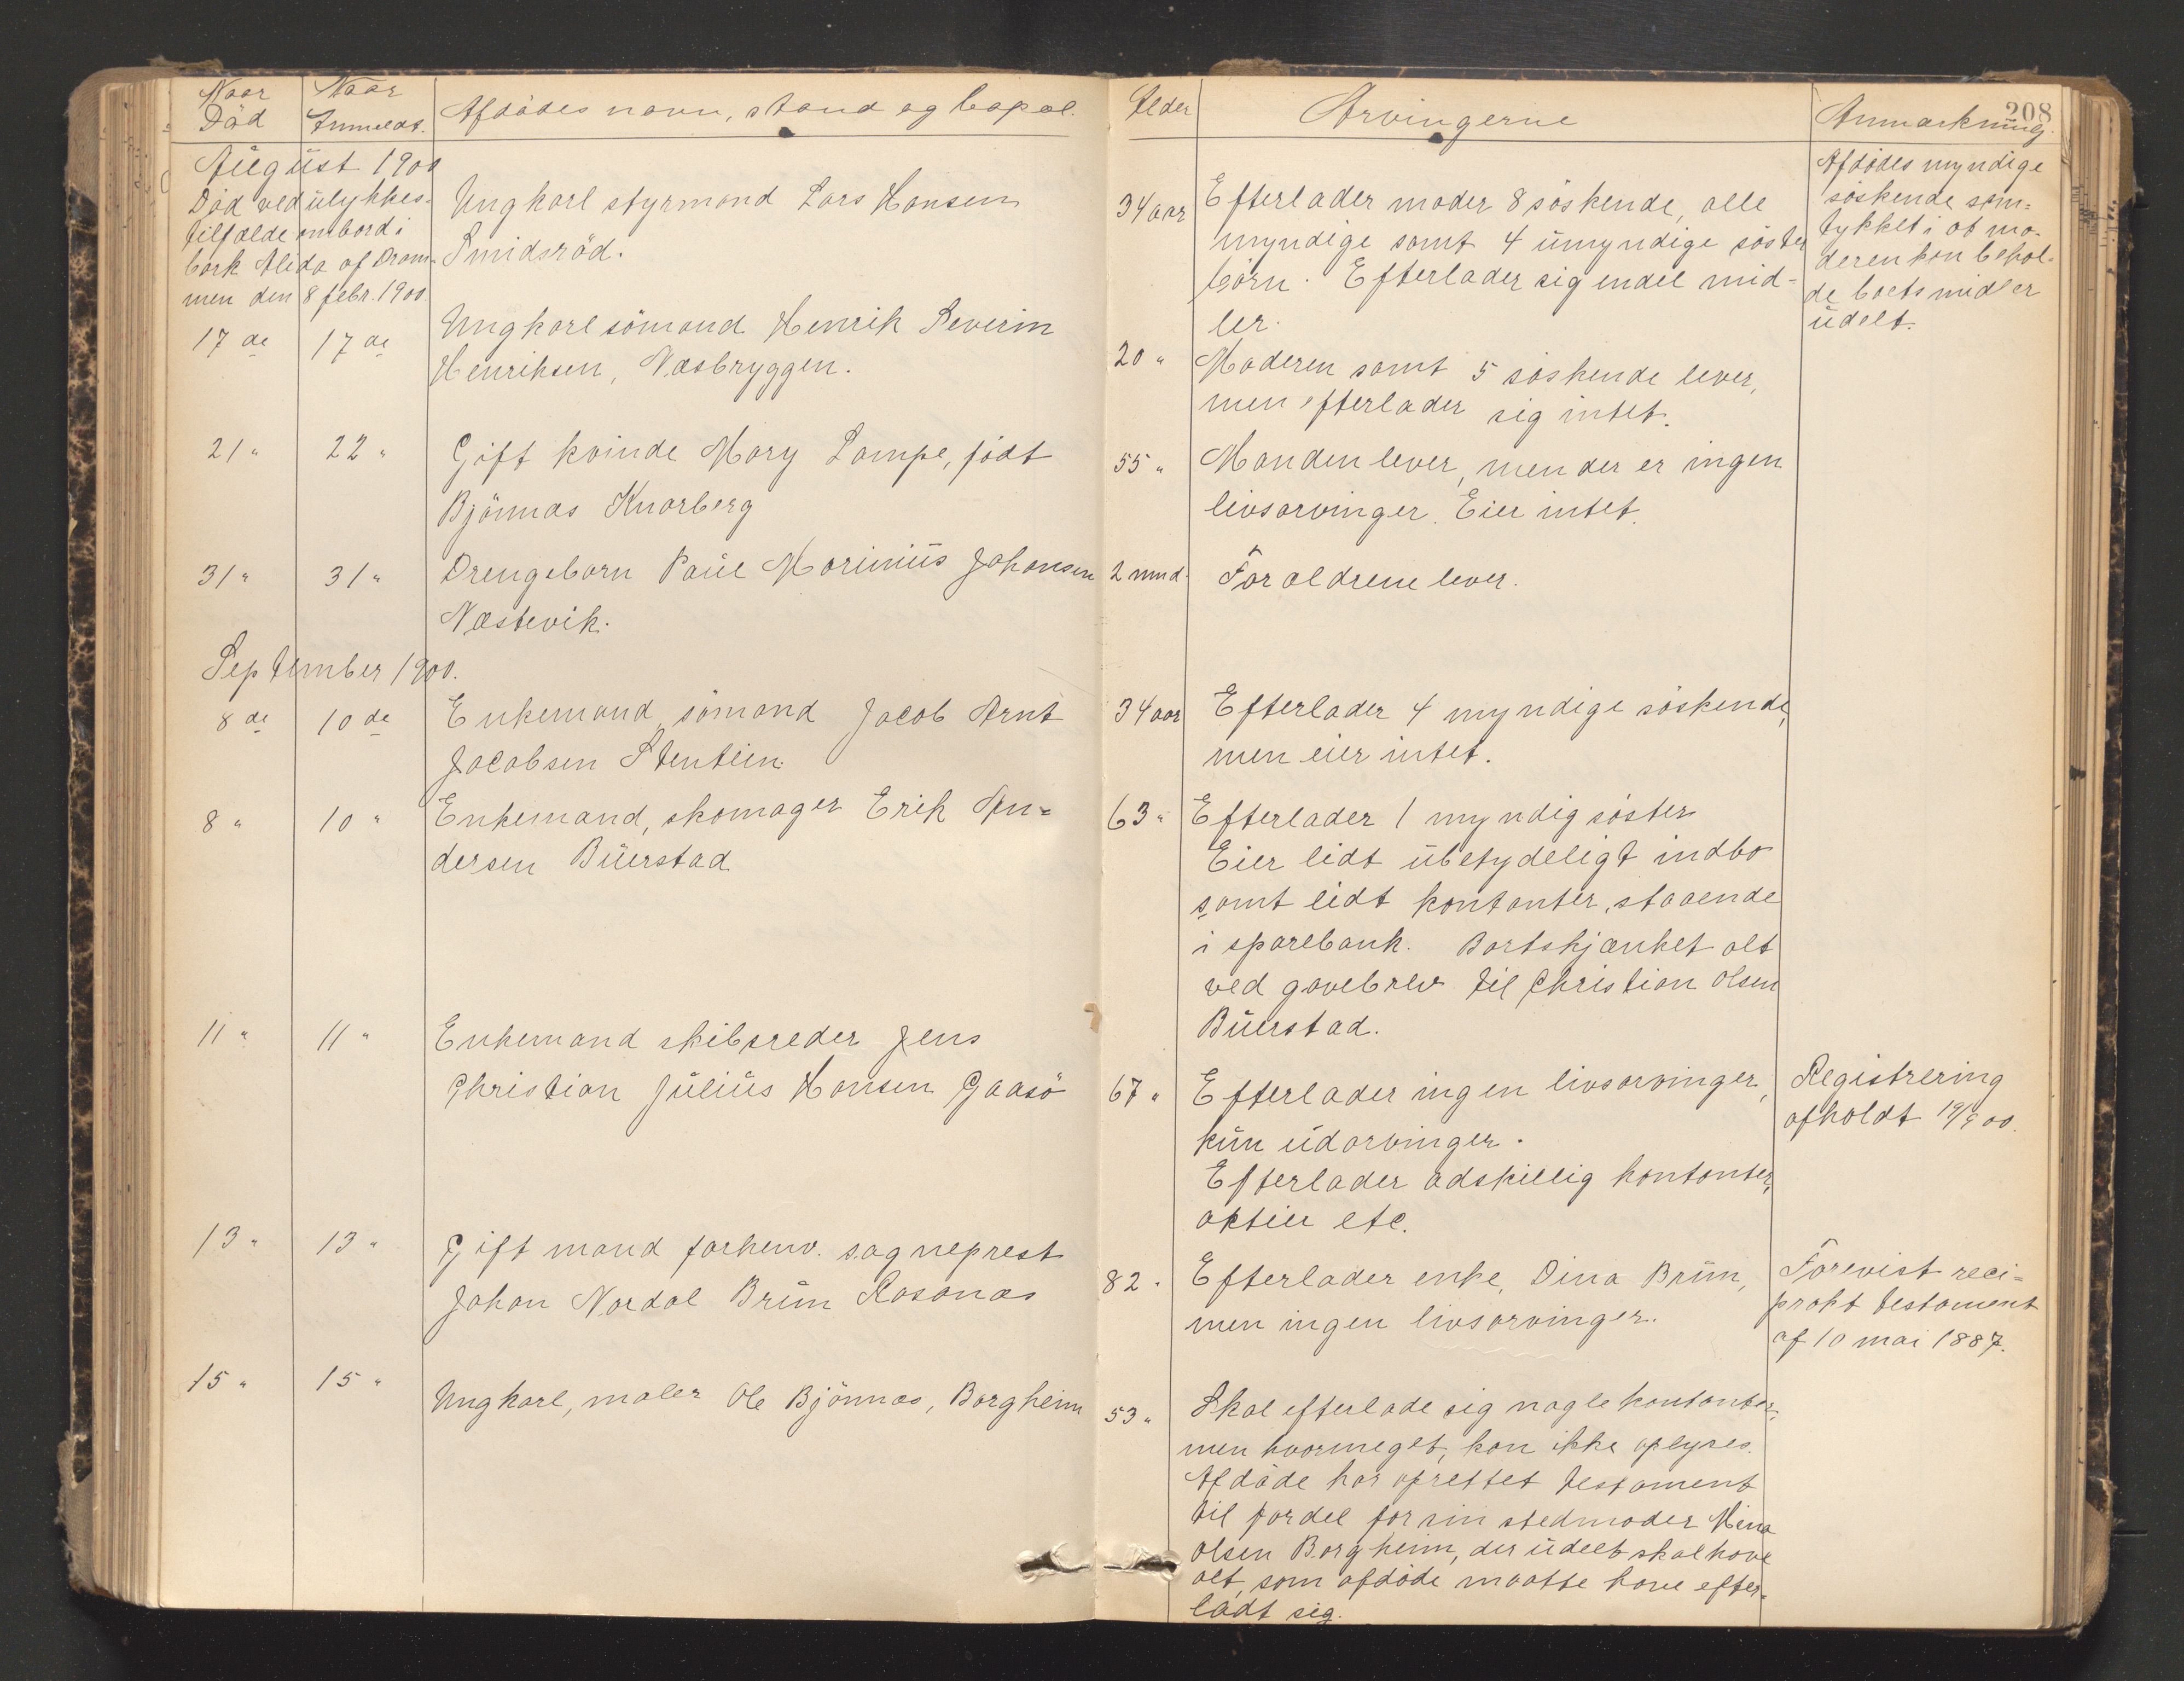 Naar Død
Naar Anmeldt.
Afdødes navn, stand og bopæl.
Alder
Arvingerne
Anmærkning.
208
August 1900
Død ved ulykkes-
tilfælde ombord i
bark Alida af Dram-
men den 8 febr. 1900.
Ungkarl styrmand Lars Hansen
Smidsrød.
34 aar
Efterlader moder 8 søskende, alle
myndige samt 4 umyndige søster
børn. Efterlader sig endel mid-
ler.
Afdødes myndige
søskende sam-
tykket i at mo-
deren kan behol-
de boets midler
udelt.
17 de
17 de
Ungkarl sømand Henrik Severin
Henriksen, Næsbryggen.
20 "
Moderen samt 5 søskende lever,
men efterlader sig intet.
21 "
22 "
Gift kvinde Mary Lampe, født
Bjønnæs Knarberg
55 "
Manden lever, men der er ingen
livsarvinger. Eier intet.
31 "
31 "
Drengebarn Paul Marinius Johansen
Næstevik.
2 mnd.
Forældrene lever.
September 1900.
8 de
10 de
Enkemand, sømand Jacob Arnt
Jacobsen Stentein.
34 aar
Efterlader 4 myndige søskende,
men eier intet.
8 "
10 "
Enkemand, skomager Erik An-
dersen Buerstad
63 "
Efterlader 1 myndig søster
Eier lidt ubetydeligt indbo
samt lidt kontanter, staaende
i sparebank. Bortskjænket alt
ved gavebrev til Christian Olsen
Buerstad.
11 "
11 "
Enkemand skibsreder Jens
Christian Julius Hansen Gaasø
67 "
Efterlader ingen livsarvinger,
kun udarvinger.
Efterlader adskillig kontanter,
aktier etc.
Registrering
afholdt 19/9 00.
13 "
13 "
Gift mand forhenv. sogneprest
Johan Nordal Brun Rosanæs
82 "
Efterlader enke, Dina Brun,
men ingen livsarvinger.
Forevist reci-
prokt testament
af 10 mai 1887.
15 "
15 "
Ungkarl, maler Ole Bjønnæs, Borgheim
53 "
Skal efterlade sig nogle kontanter,
men hvormeget, kan ikke oplyses.
Afdøde har oprettet testament
til fordel for sin stedmoder Mina
Olsen Borgheim, der udelt skal have
alt, som afdøde maatte have efter-
ladt sig.